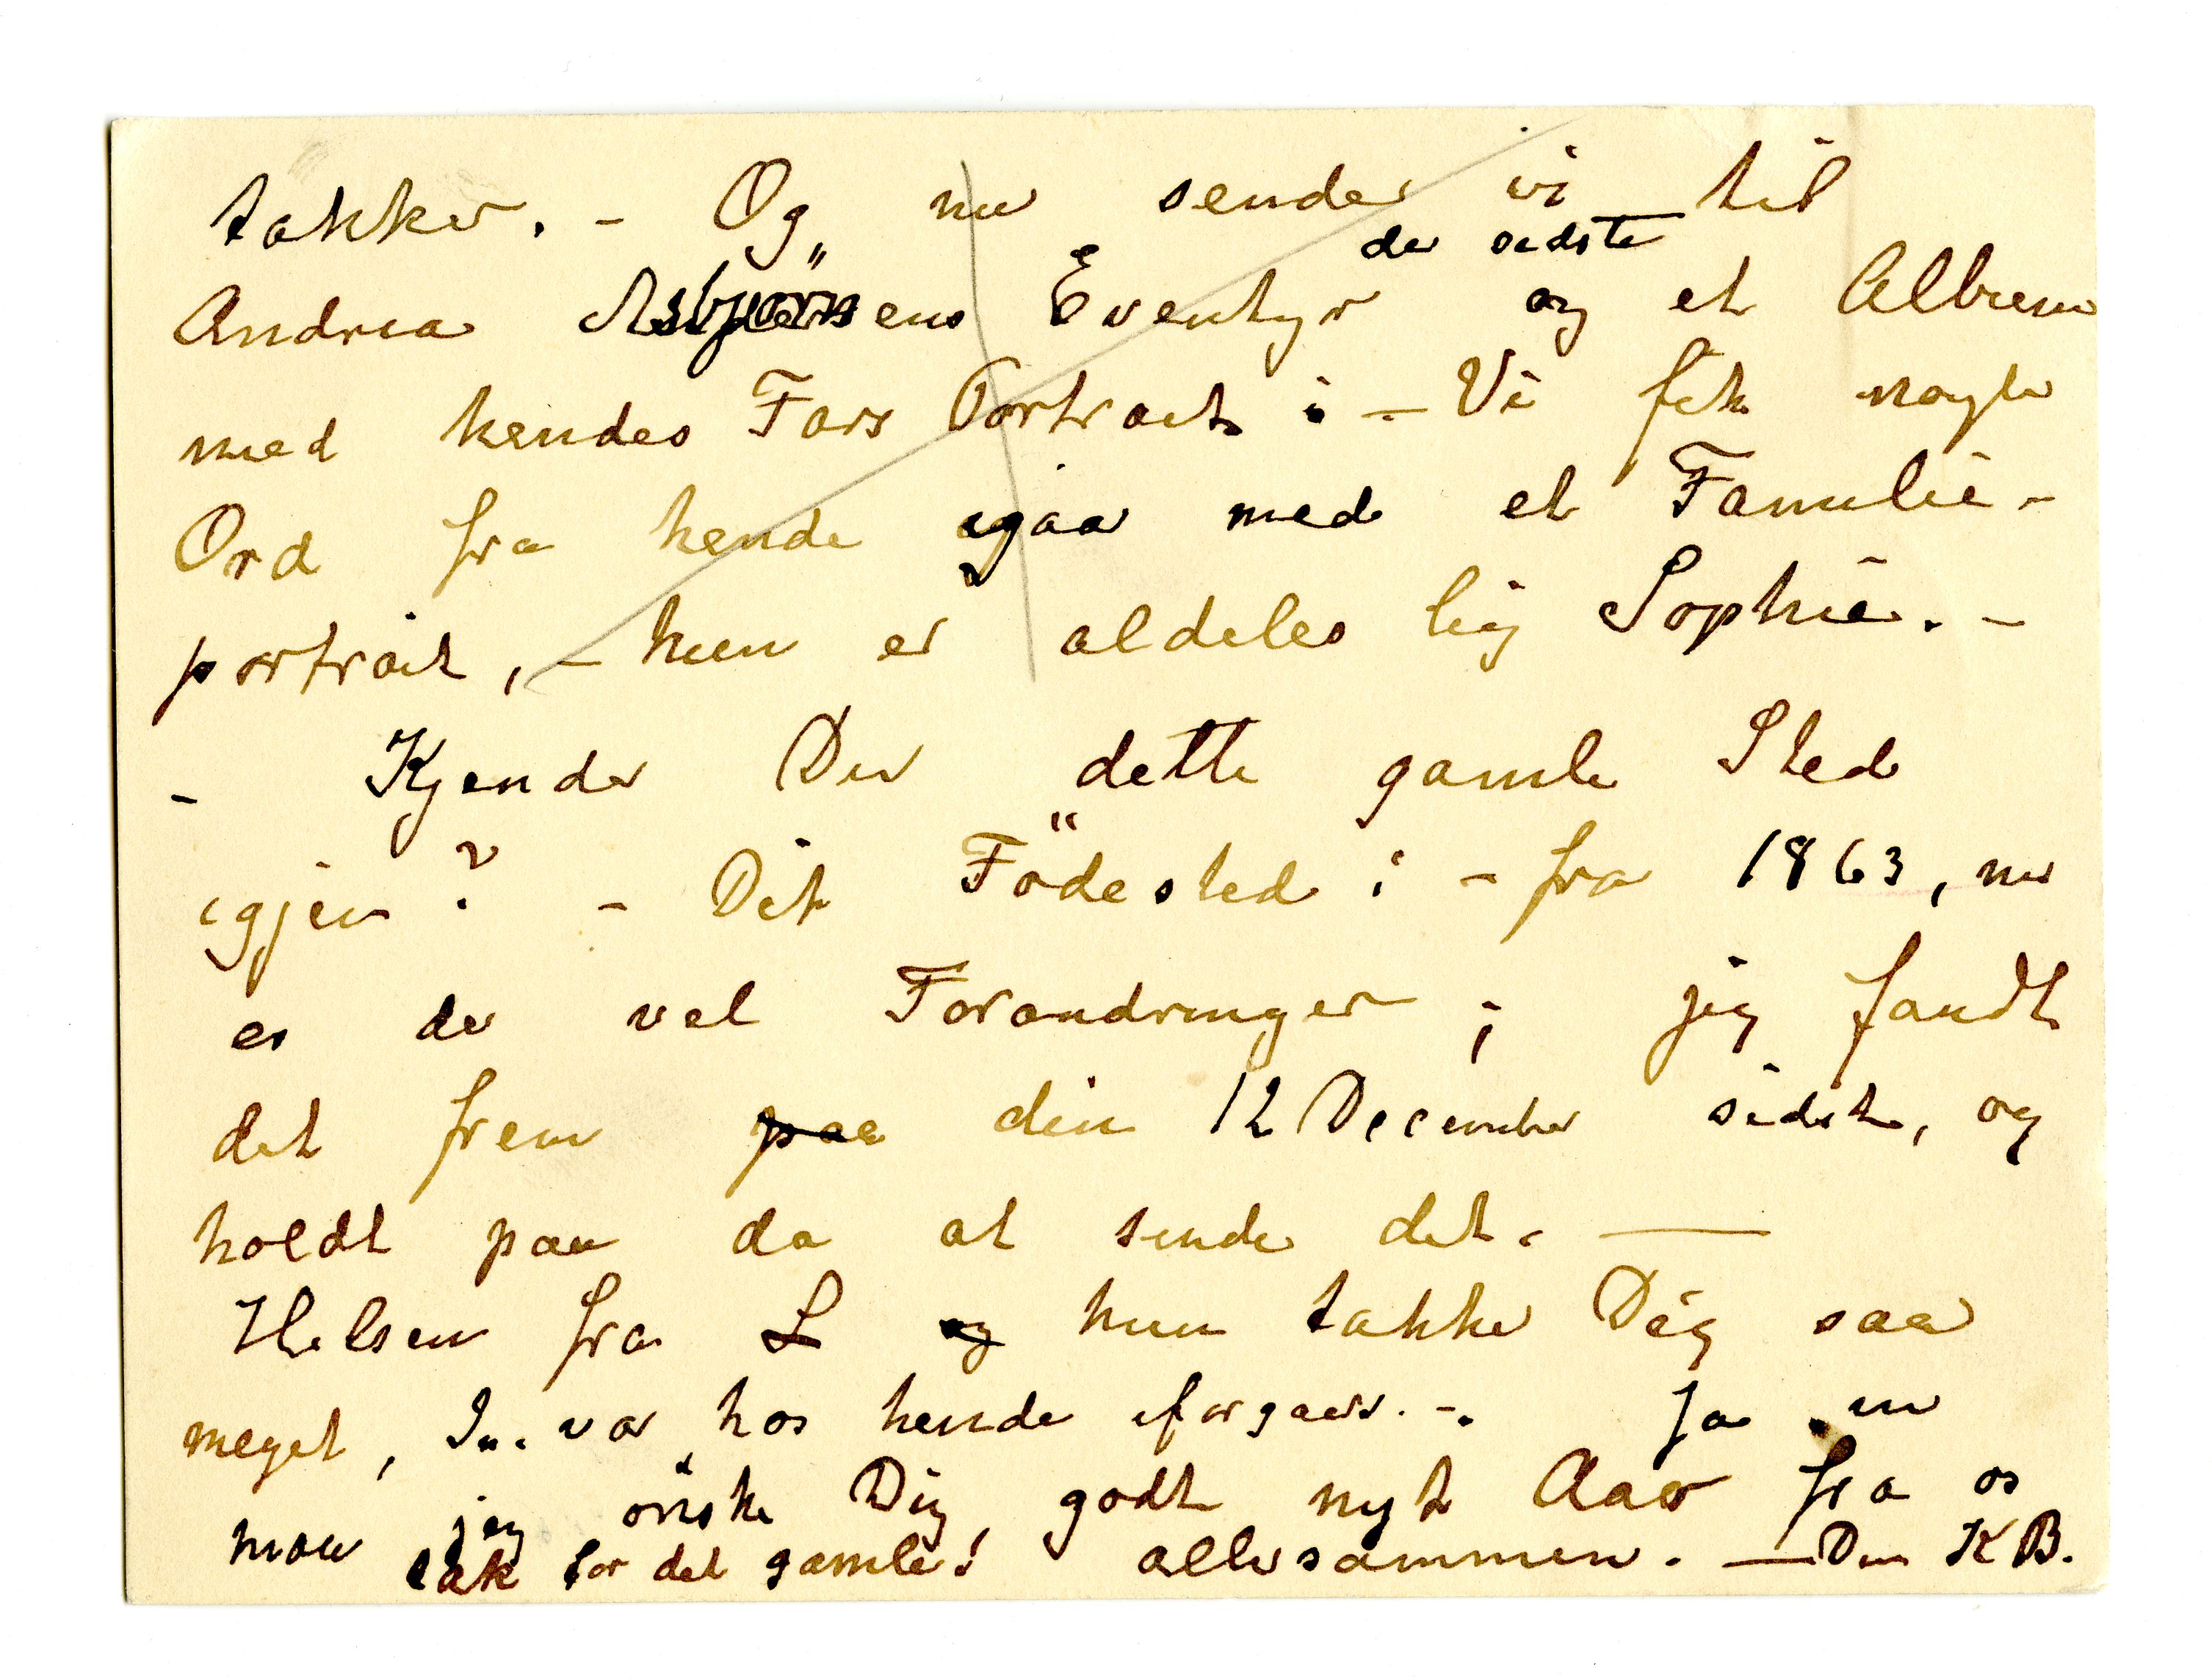 takker. - Og nu sender vi til
de sidste
Andrea Asbjörnsens Eventyr og et Album
med hendes Fars Portrait i - Vi fik nogle
Ord fra hende igaar med et Familie-
portrait, - hun er aldeles lig Sophie. -
- Kjender Du dette gamle Sted
igjen? - Dit Födested i - fra 1863, nu
er der vel Forandringer; jeg fandt
det frem paa din 12 December sidst, og
holdt paa da at sende det. —
Hilsen fra L og hun takker Dig saa
meget, var hos hende iforgaars. -. Ja nu
maa jeg önske Dig godt nyt Aar fra os
tak for det gamle! allesammen. — Din KB.